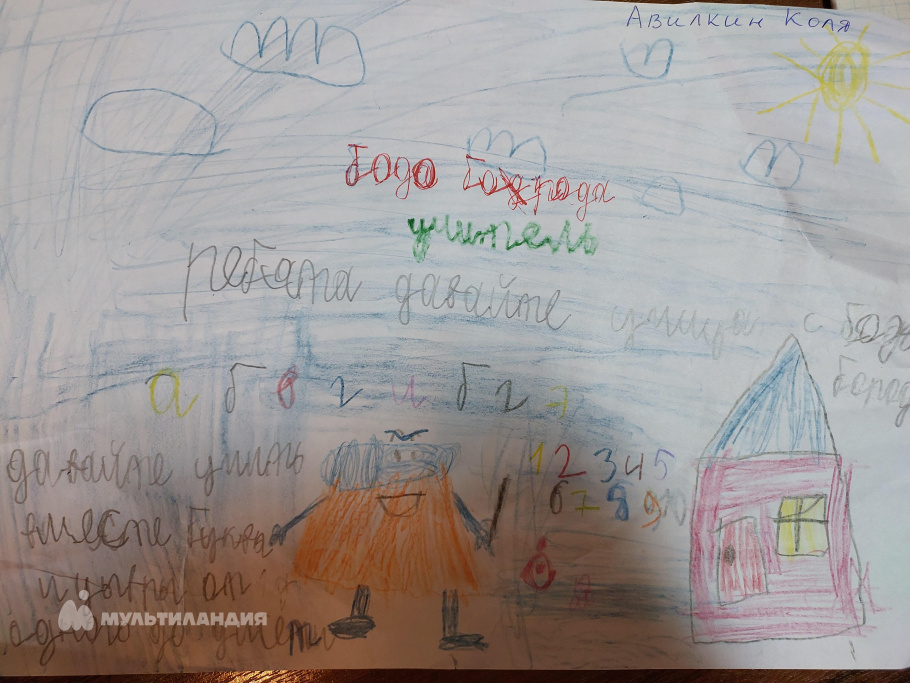 Авилкин Коля
бодо борода
учитель
ребята давайте с бодо
борода
а б в г и б г 7
давайте учить
вместе буквы
1 2 3 4 5
6 7 8 9 10
и от
одного до
МУЛЬТИЛАНДИЯ